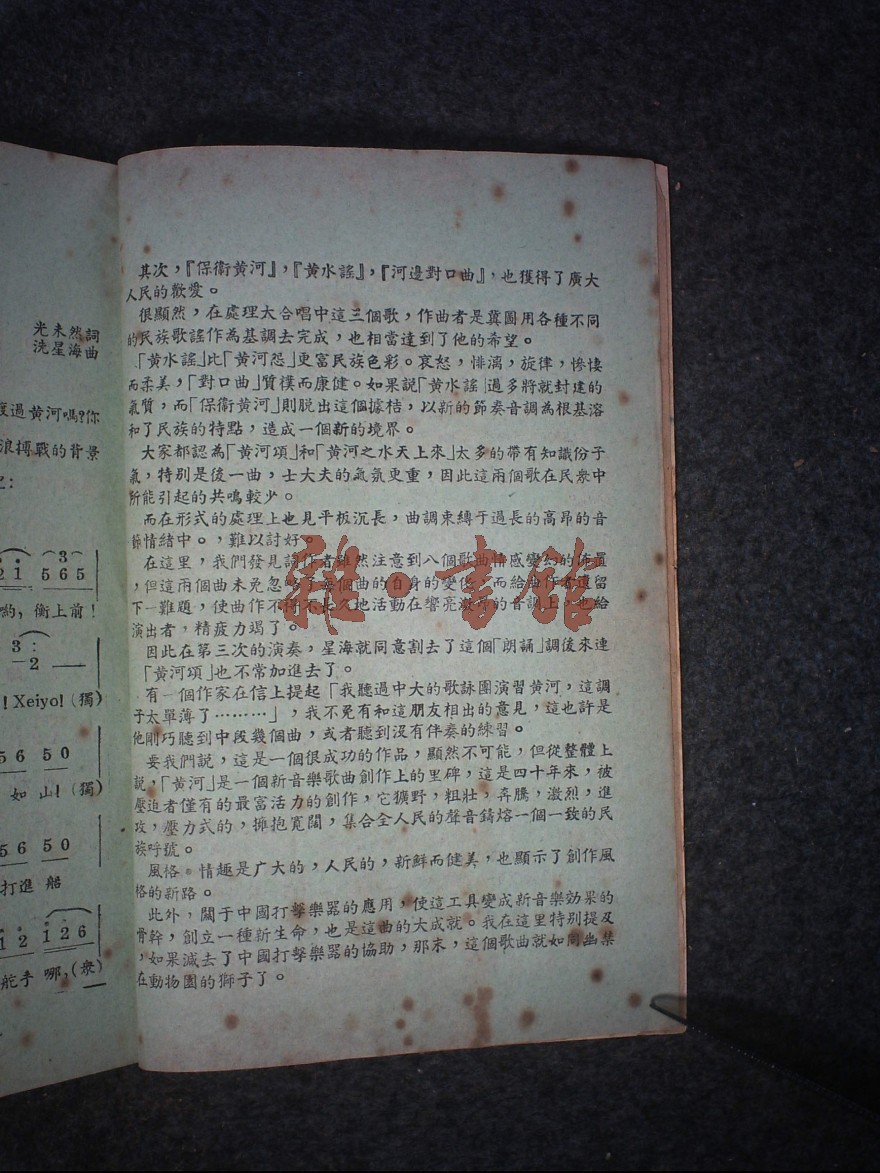 光未然詞
洗星海曲
度過黄河嗎?你
浪搏戰的背景
:
(3)
2 1 5 6 5
喲,衝上前!
3 :
-2 ——
! Xeiyo! (獨)
5 6 5 0
如山! (獨)
5 6 5 0
打進船
1 2 1 2 6
舵手哪,(衆)
其次,『保衛黄河』,『黄水謠』,『河邊對口曲』,也獲得了廣大
人民的歡愛。
很顯然,在處理大合唱中這三個歌,作曲者是冀圖用各種不同
的民族歌謠作為基調去完成,也相當達到了他的希望。
「黄水謠」比「黄河怨」更富民族色彩。哀怒,悱漓,旋律,悽
而柔美,「對口曲」質樸而康健。如果說「黄水謠」過多將就封建的
氣質,而「保衛黄河」則脱出這個據桔,以新的節奏音調為根基溶
和了民族的特點,造成一個新的境界。
大家都認為「黄河頌」和「黄河之水天上來」太多的帶有知識份子
氣,特别是後一曲,士大夫的氣氛更重,因此這兩個歌在民衆中
所能引起的共鳴較少。
而在形式的處理上也見平板沉長,曲調束縛于過長的高昂的音
節情結中。,難以討好。
在這里,我們發見詞作者雖然注意到八個歌曲情感變幻的佈置
,但這兩個曲未免忽略了每個曲的自身的變化,而給曲作者遺留
下一難題,使曲作不得不長久地活動在響亮的音調上,也給
演出者,精疲力竭了。
因此在第三次的演奏,星海就同意割去了這個「朗誦」調後來連
「黄河頌」也不常加進去了。
有一個作家在信上提起「我聽過中大的歌詠團演習黄河,這調
子太單薄了………」,我不免有和這朋友相出的意見,這也許是
他剛巧聽到中段幾個曲,或者聽到沒有伴奏的練習。
要我們說,這是一個很成功的作品,顯然不可能,但從整體上
説,「黄河」是一個新音樂歌曲創作上的里碑,這是四十年來,被
壓迫者僅有的最富活力的創作,它獷野,粗壯,奔騰,激烈,進
攻,壓力式的,擁抱寬闊,集合全人民的聲音鑄熔一個一致的民
族呼號。
風格。情趣是广大的,人民的,新鮮而健美,也顯示了創作風
格的新路。
此外,關于中國打擊樂器的應用,使這工具變成新音樂效果的
骨幹,創立一種新生命,也是這曲的大成就。我在這里特别提及
,如果減去了中國打擊樂器的協助,那末,這個歌曲就如同幽禁
在動物園的獅子了。
雜·書館